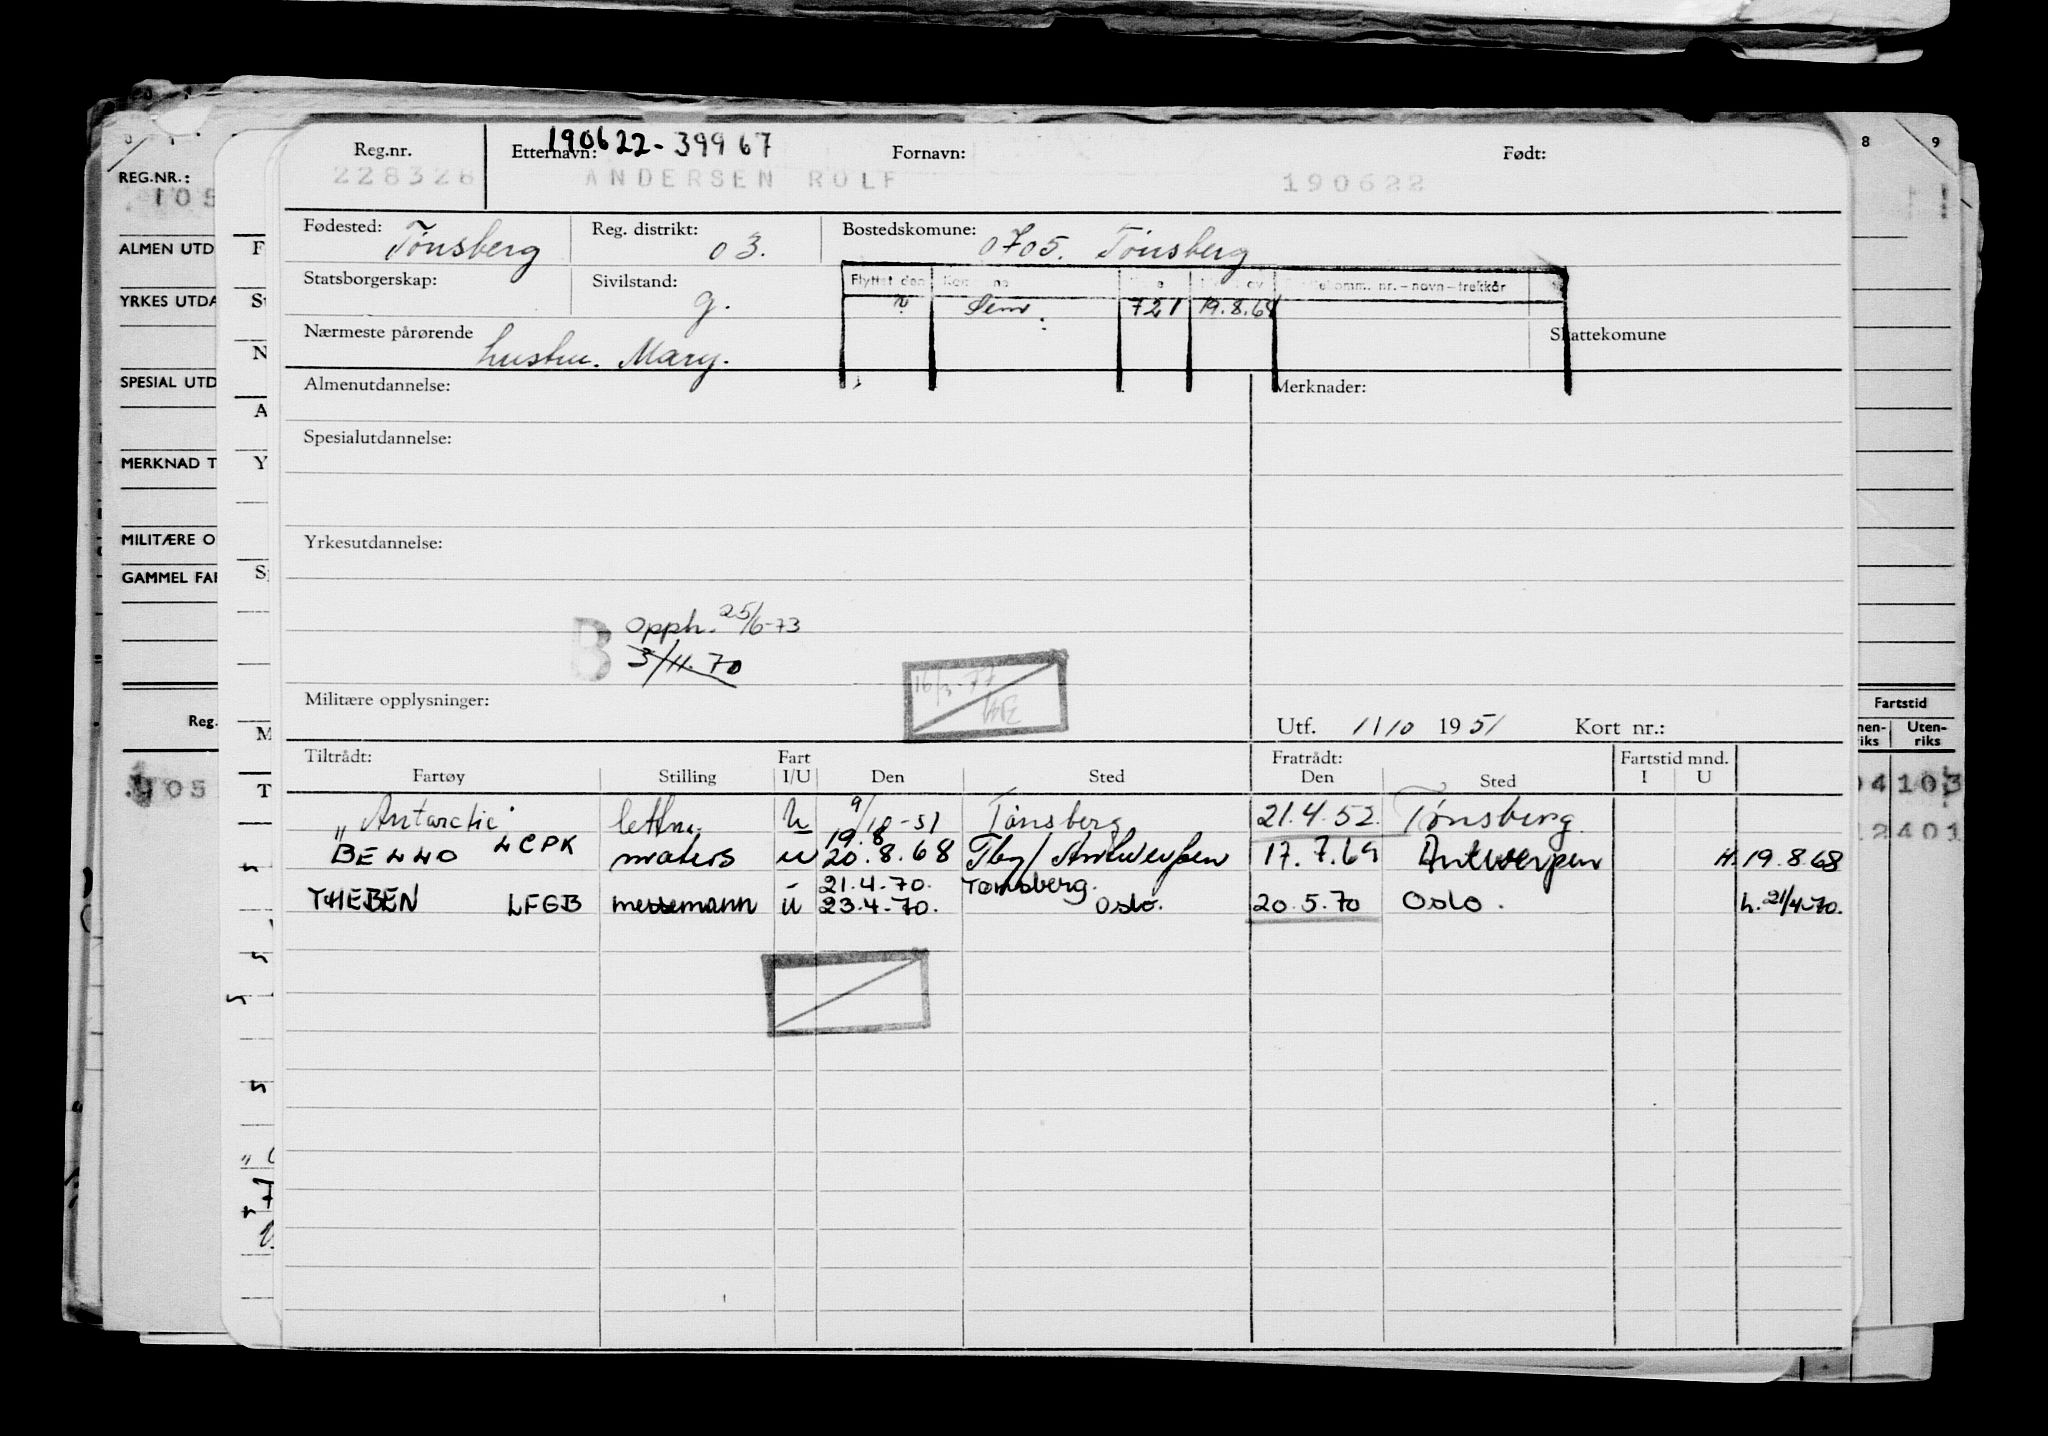 190622-39967
Reg.nr. Etternavn: Fornavn: Født:
228326 ANDERSEN ROLF 190622
Fødested: Tønsberg Reg. distrikt: 03. Bostedskomune: 0705. Tønsberg
Statsborgerskap: Sivilstand: g. Flyttet den
Sem 721 19.8.68
Nærmeste pårørende hustru. Mary. Skattekomune
Almenutdannelse: Merknader:
Spesialutdannelse:
Yrkesutdannelse:
B Opph. 25/6-73
3/11.70
16/3-77
Militære opplysninger: Utf. 11/10 1951 Kort nr.:
Tiltrådt: Fart Fratrådt: Fartstid mnd.
Fartøy Stilling I/U Den Sted Den Sted I U
"Antarctic" U 9/10-51 Tønsberg 21.4.52. Tønsberg.
19.8
LCPK u 20.8.68 Tbg/Antwerpen 17.7.69 Antwerpen H.19.8.68
21.4.70. Tønsberg.
THEBEN LFGB messemann u 23.4.70. Oslo. 20.5.70 Oslo. h. 21/4-70.
REG.NR.:
105
ALMEN UTD
YRKES UTDA
SPESIAL UTD
MERKNAD T
MILITÆRE O
GAMMEL FAR
Reg.
105
F
N
A
Y
M
T
8 9
Fartstid
Uten-
riks